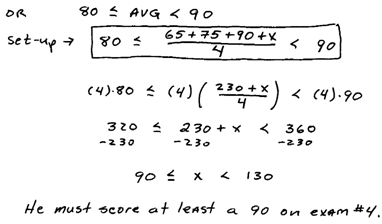 OR 80 ≤ AVG < 90
set-up → 80 ≤ (65+75+90+x)/4 < 90
(4)·80 ≤ (4)((230+x)/4) < (4)·90
320 ≤ 230+x < 360
-230 -230 -230
90 ≤ x < 130
He must score at least a 90 on exam #4.